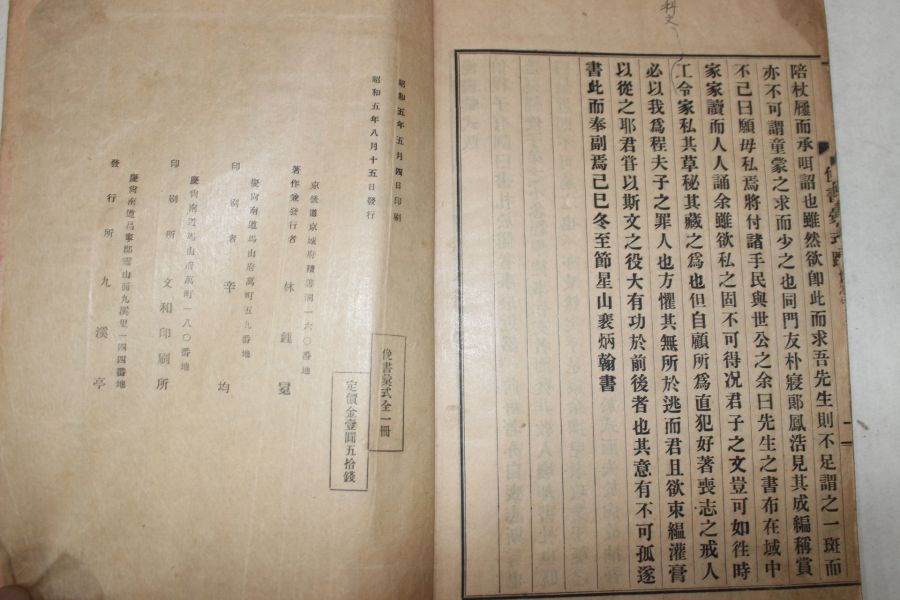 陪杖屨而承咡詔也雖然欲卽此而求吾先生則不足謂之一斑而
亦不可謂童蒙之求而少之也同門友朴寢郞鳳浩見其成編稱賞
不已曰願毋私焉將付諸手民與世公之余曰先生之書布在域中
家家讀而人人誦余雖欲私之固不可得况君子之文豈可如徃時
工令家私其草秘其藏之爲也但自顧所爲直犯好著喪志之戒人
必以我爲程夫子之罪人也方懼其無所於逃而君且欲束縕灌膏
以從之耶君甞以斯文之役大有功於前後者也其意有不可孤遂
書此而奉副焉己巳冬至節星山裴炳翰書
科文
俛書彙式跋
昭和五年五月四日印刷
昭和五年八月十五日發行
京畿道京城府積善洞一六〇番地
著作兼發行者 休鍾冕
慶尙南道馬山府萬町五九番地
印刷者 辛均
慶尙南道馬山府萬町一八〇番地
印刷所 文和印刷所
慶尙南道昌寧郡靈山面九溪里一四四番地
發行所 九溪亭
俛書彙式全一冊
定價金壹圓五拾錢